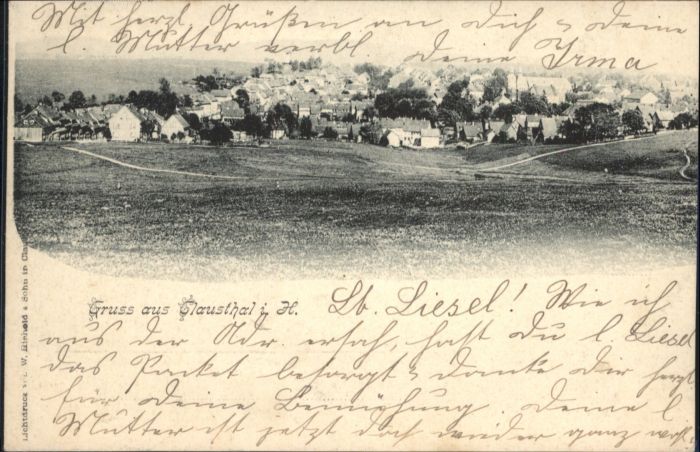 Mit herzl. Grüßen an Dich & Deine
l. Mutter verbl. Deine Irma
Gruss aus Clausthal i. H.
Lb. Liesel! Wie ich
aus der Adr. ersah, hast Du l. Liesel
das Packet besorgt & danke Dir herzl
für Deine Bemühung. Deine l
Mutter ist jetzt doch wieder ganz wohl
Lichtdruck W. & Sohn in Clau